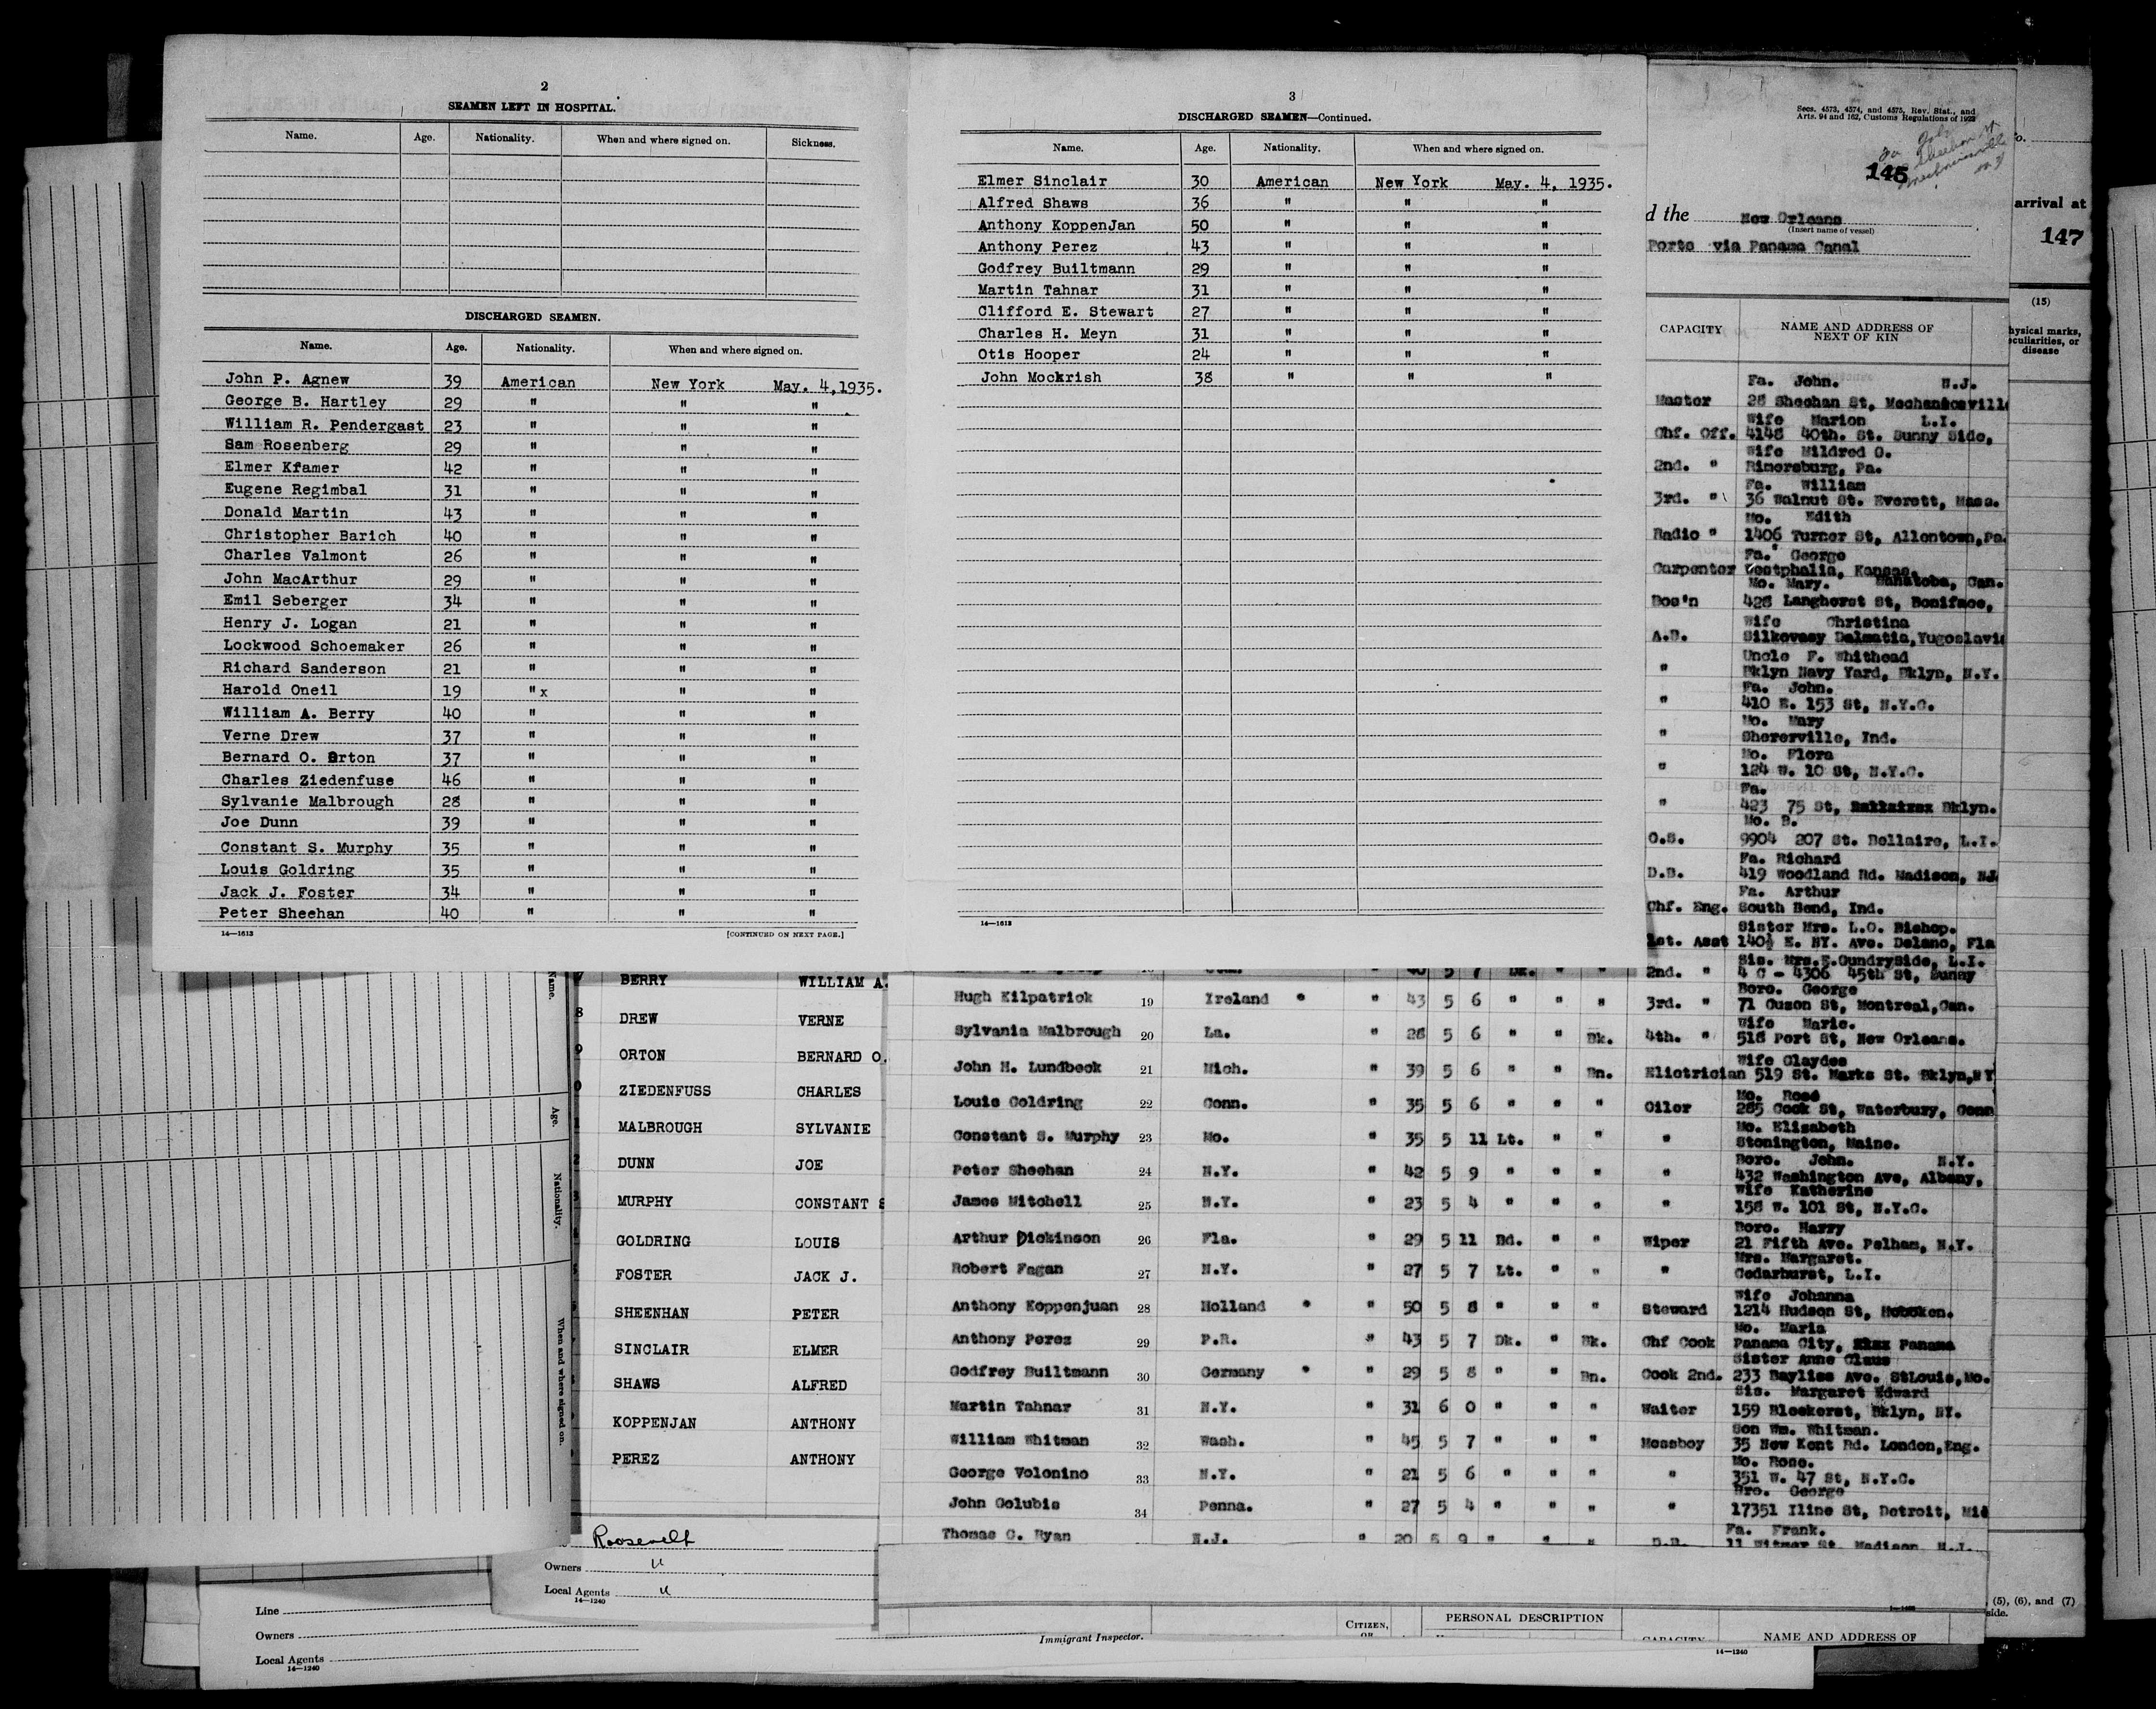 2
SEAMEN LEFT IN HOSPITAL.
Name. Age. Nationality. When and where signed on. Sickness.
DISCHARGED SEAMEN.
Name. Age. Nationality. When and where signed on.
John P. Agnew 39 American New York May. 4,1935.
George B. Hartley 29 " " "
William R. Pendergast 23 " " "
Sam Rosenberg 29 " " "
Elmer Kramer 42 " " "
Eugene Regimbal 31 " " "
Donald Martin 43 " " "
Christopher Barich 40 " " "
Charles Valmont 26 " " "
John MacArthur 29 " " "
Emil Seberger 34 " " "
Henry J. Logan 21 " " "
Lockwood Schoemaker 26 " " "
Richard Sanderson 21 " " "
Harold Oneil 19 " x " "
William A. Berry 40 " " "
Verne Drew 37 " " "
Bernard O. Orton 37 " " "
Charles Ziedenfuse 46 " " "
Sylvanie Malbrough 28 " " "
Joe Dunn 39 " " "
Constant S. Murphy 35 " " "
Louis Goldring 35 " " "
Jack J. Foster 34 " " "
Peter Sheehan 40 " " "
14—1613 [CONTINUED ON NEXT PAGE.]
3
DISCHARGED SEAMEN—Continued.
Name. Age. Nationality. When and where signed on.
Elmer Sinclair 30 American New York May. 4, 1935.
Alfred Shaws 36 " " "
Anthony KoppenJan 50 " " "
Anthony Perez 43 " " "
Godfrey Builtmann 29 " " "
Martin Tahnar 31 " " "
Clifford E. Stewart 27 " " "
Charles H. Meyn 31 " " "
Otis Hooper 24 " " "
John Mockrish 38 " " "
14—1613
Secs. 4573, 4574, and 4575, Rev. Stat., and
Arts. 94 and 162, Customs Regulations of 1923
145
d the New Orleans
(Insert name of vessel)
Ports via Panama Canal
arrival at
147
(15)
hysical marks,
eculiarities, or
disease
CAPACITY NAME AND ADDRESS OF
NEXT OF KIN
Fa. John. N.J.
Master 28 Sheehan St, Mechanicsville
Wife Marion L.I.
Chf. Off. 4148 40th. St. Sunny Side,
Wife Mildred O.
2nd. " Rimersburg, Pa.
Fa. William
3rd. " 36 Walnut St. Everett, Mass.
Mo. Edith
Radio " 1406 Turner St, Allentown,Pa.
Fa. George
Carpenter Westphalia, Kansas.
Mo. Mary. Manatoba, Can.
Bos'n 428 Langhorst St, Boniface,
Wife Christina
A.B. Silkovacy Dalmatia,Yugoslavia
Uncle F. Whithead
" Bklyn Navy Yard, Bklyn, N.Y.
Fa. John.
" 410 E. 153 St, N.Y.C.
Mo. Mary
" Shererville, Ind.
Mo. Flora
" 124 W. 10 St, N.Y.C.
Fa.
" 423 75 St, Bklyn.
Mo. B.
O.S. 9904 207 St. Bellaire, L.I.
Fa. Richard
D.B. 419 Woodland Rd. Madison, NJ
Fa. Arthur
Chf. Eng. South Bend, Ind.
Sister Mrs. L.O. Bishop.
1st. Asst 140½ E. NY. Ave. Deland, Fla
Sis. Mrs.E.GundrySide, L.I.
2nd. " 4 C - 4306 45th St, Sunny
BERRY WILLIAM A.
DREW VERNE
ORTON BERNARD O.
ZIEDENFUSS CHARLES
MALBROUGH SYLVANIE
DUNN JOE
MURPHY CONSTANT S
GOLDRING LOUIS
FOSTER JACK J.
SHEENHAN PETER
SINCLAIR ELMER
SHAWS ALFRED
KOPPENJAN ANTHONY
PEREZ ANTHONY
Name.
Age.
Nationality.
When and where signed on.
Boro. George
Hugh Kilpatrick 19 Ireland * " 43 5 6 " " " 3rd. " 71 Cuzon St, Montreal,Can.
Wife Marie.
Sylvania Malbrough 20 La. " 28 5 6 " " Bk. 4th. " 518 Port St, New Orleans.
Wife Claydee
John H. Lundbeck 21 Mich. " 39 5 6 " " Bn. Elictrician 519 St. Marks St. Bklyn,NY
Mo. Rose
Louis Goldring 22 Conn. " 35 5 6 " " " Oiler 265 Cook St, Waterbury, Conn
Mo. Elizabeth
Constant S. Murphy 23 Mo. " 35 5 11 Lt. " " " Stonington, Maine.
Boro. John. N.Y.
Peter Sheehan 24 N.Y. " 42 5 9 " " " " 432 Washington Ave, Albany,
Wife Katherine
James Mitchell 25 N.Y. " 23 5 4 " " " " 158 W. 101 St, N.Y.C.
Boro. Harry
Arthur Dickinson 26 Fla. " 29 5 11 Bd. " " Wiper 21 Fifth Ave. Pelham, N.Y.
Mrs. Margaret.
Robert Fagan 27 N.Y. " 27 5 7 Lt. " " " Cedarhurst, L.I.
Wife Johanna
Anthony Koppenjuan 28 Holland * " 50 5 8 " " " Steward 1214 Hudson St, Hoboken.
Mo. Maria
Anthony Perez 29 P.R. " 43 5 7 Dk. " Bk. Chf Cook Panama City, Panama
Sister Anne Claus
Godfrey Builtmann 30 Germany * " 29 5 8 " " Bn. Cook 2nd. 233 Bayliss Ave. StLouis,Mo.
Sis. Margaret Edward
Martin Tahnar 31 N.Y. " 31 6 0 " " " Waiter 159 Bleekerst, Bklyn, NY.
Son Wm. Whitman.
William Whitman 32 Wash. " 45 5 7 " " " Messboy 35 New Kent Rd. London,Eng.
Mo. Rose.
George Volonino 33 N.Y. " 21 5 6 " " " " 351 W. 47 St, N.Y.C.
Bro. George
John Golubis 34 Penna. " 27 5 4 " " " " 17351 Iline St, Detroit, Mic
Fa. Frank.
Thomas C. Ryan N.J. " 20 5 9 " " " D.B. 11 Witmer St. Madison N.J.
Roosevelt
Owners "
Local Agents "
14—1240
Line
Owners
Local Agents
14—1240
Immigrant Inspector.
CITIZEN,
OR
PERSONAL DESCRIPTION
CAPACITY NAME AND ADDRESS OF
14—1240
, (5), (6), and (7)
side.